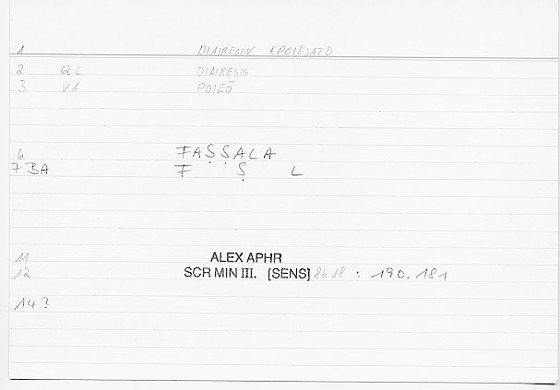 1 DIAIRESIN EPOIĒSATO
2 QC DIAIRESIS
3 VA POIEŌ
6 FAṢṢALA
7 BA F Ṣ L
11 ALEX APHR
12 SCR MIN III. [SENS] 86 18 : 190, 181
14 ?